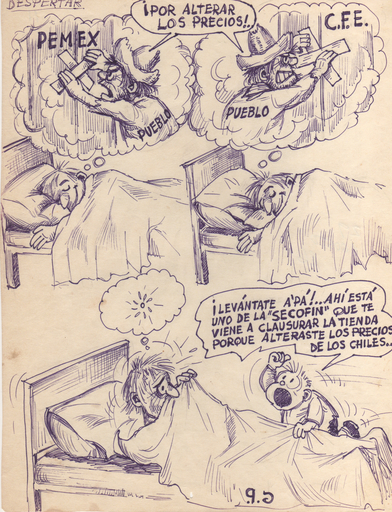 DESPERTAR
¡POR ALTERAR
LOS PRECIOS!..
PEMEX
C.F.E.
PUEBLO
PUEBLO
¡LEVÁNTATE A'PÁ!.. AHÍ ESTÁ
UNO DE LA "SECOFIN" QUE TE
VIENE A CLAUSURAR LA TIENDA
PORQUE ALTERASTE LOS PRECIOS
DE LOS CHILES..